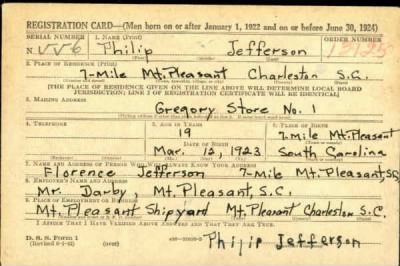 REGISTRATION CARD—(Men born on or after January 1, 1922 and on or before June 30, 1924)
SERIAL NUMBER 1. NAME (Print) ORDER NUMBER
Philip Jefferson
2. PLACE OF RESIDENCE (Print)
7-Mile Mt. Pleasant Charleston S.C.
[THE PLACE OF RESIDENCE GIVEN ON THE LINE ABOVE WILL DETERMINE LOCAL BOARD
JURISDICTION; LINE 2 OF REGISTRATION CERTIFICATE WILL BE IDENTICAL]
3. MAILING ADDRESS
Gregory Store No. 1
4. TELEPHONE 5. AGE IN YEARS 6. PLACE OF BIRTH
19 7-mile Mt. Pleasant
DATE OF BIRTH
Mar. 12, 1923 South Carolina
7. NAME AND ADDRESS OF PERSON WHO WILL ALWAYS KNOW YOUR ADDRESS
Florence Jefferson 7-Mile Mt. Pleasant, S.C.
8. EMPLOYER'S NAME AND ADDRESS
Mr. Darby, Mt. Pleasant, S.C.
9. PLACE OF EMPLOYMENT OR BUSINESS
Mt. Pleasant Shipyard Mt. Pleasant Charleston S.C.
I AFFIRM THAT I HAVE VERIFIED ABOVE ANSWERS AND THAT THEY ARE TRUE.
D. S. S. Form 1
Philip Jefferson